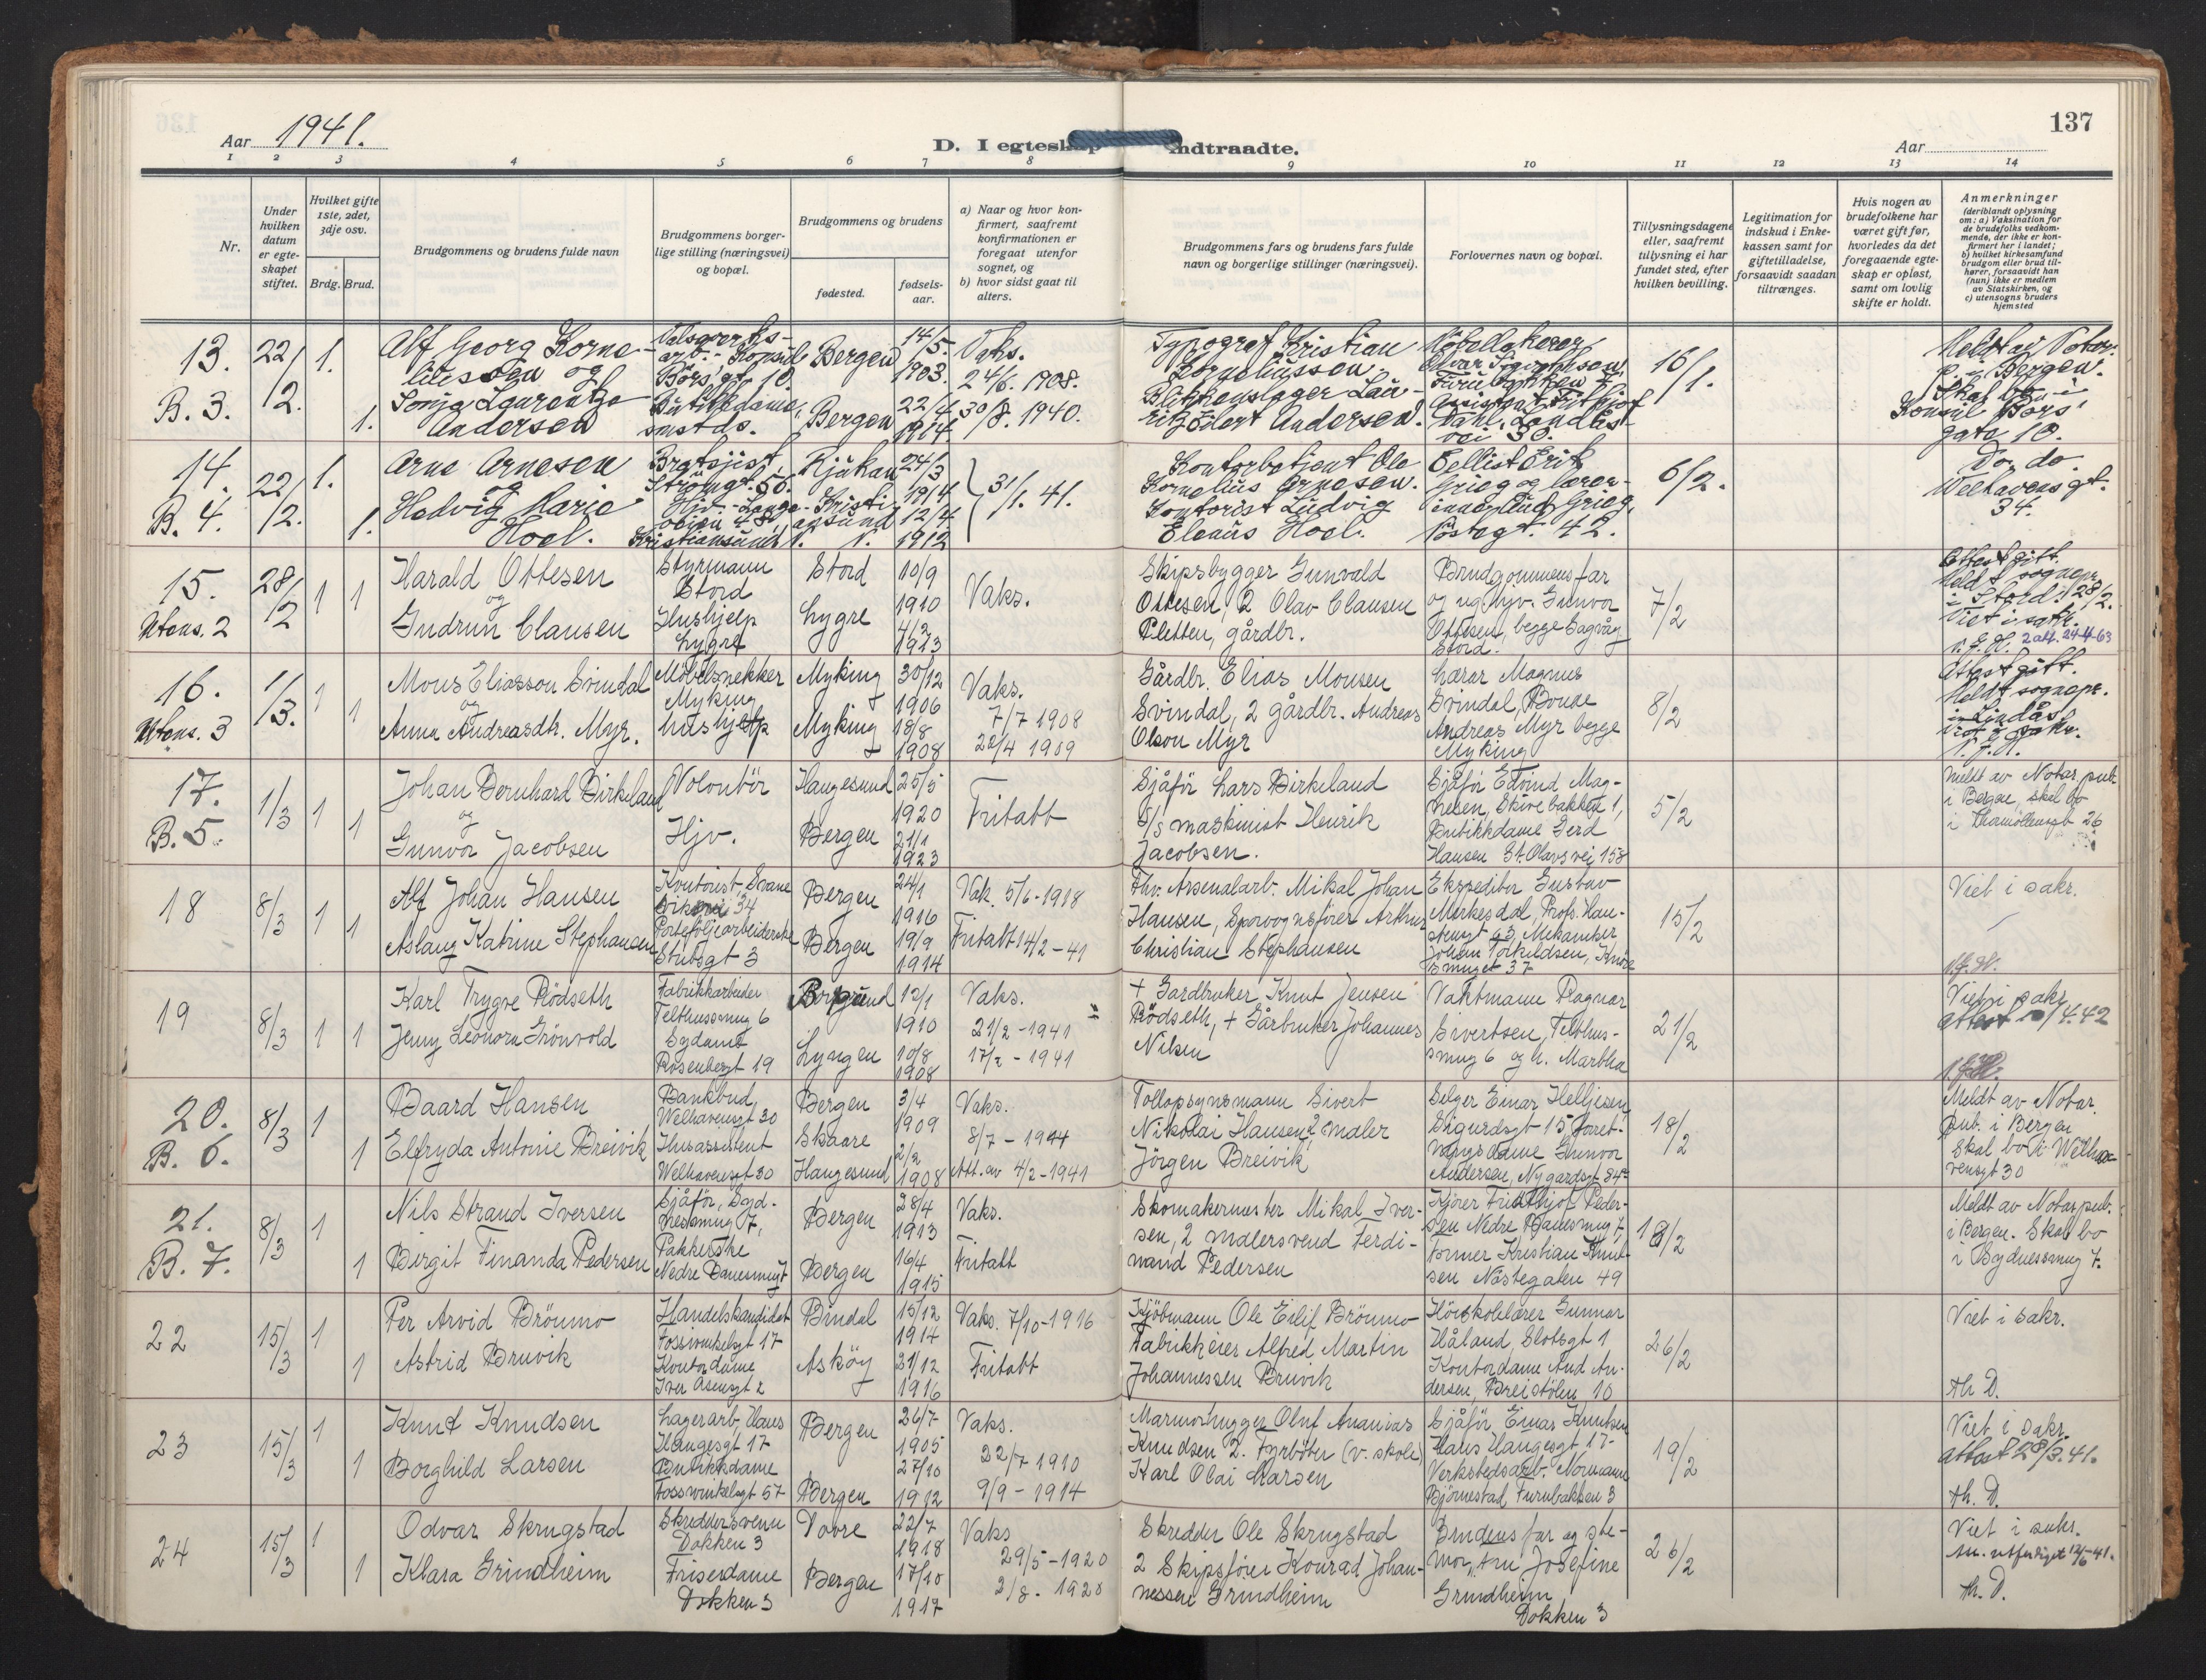 Aar 1941.
D. I egteskap indtraadte.
Aar
137
1 2 3 4 5 6 7 8 9 10 11 12 13 14
Nr.
Under hvilken datum er egteskapet stiftet.
Hvilket gifte 1ste, 2det, 3dje osv.
Brdg. Brud.
Brudgommens og brudens fulde navn
Brudgommens borgerlige stilling (næringsvei) og bopæl.
Brudgommens og brudens
fødested.
fødselsaar.
a) Naar og hvor konfirmert, saafremt konfirmationen er foregaat utenfor sognet, og
b) hvor sidst gaat til alters.
Brudgommens fars og brudens fars fulde navn og borgerlige stillinger (næringsvei).
Forlovernes navn og bopæl.
Tillysningsdagene eller, saafremt tillysning ei har fundet sted, efter hvilken bevilling.
Legitimation for indskud i Enkekassen samt for giftetilladelse, forsaavidt saadan tiltrænges.
Hvis nogen av brudefolkene har været gift før, hvorledes da det foregaaende egteskap er opløst, samt om lovlig skifte er holdt.
Anmerkninger
(deriblandt oplysning om: a) Vaksination for de brudefolks vedkommende, der ikke er konfirmert her i landet;
b) hvilket kirkesamfund brudgom eller brud tilhører, forsaavidt han (hun) ikke er medlem av Statskirken, og
c) utensogns bruders hjemsted
13. B. 3.
22/2.
1. 1.
Alf Georg Korneliussen og
Sonja Laurentze Andersen
Valsaverks-arb. - Konsul Børs' gt 10.
Butikkdame, smstds.
Bergen 14/5. 1903.
Bergen 22/4 1914
Vaks.
24/6. 1908.
30/8. 1940.
Typograf Kristian Korneliussen.
Blikkenslager Lauritz Edert Andersen.
16/1.
Meldt av Notar. p. i Bergen.
Skal bo i Konsul Børs' gate 10.
14. B. 4.
22/2.
1. 1.
Arne Arnesen og
Hedvig Marie Hoel.
Strømgt. 56.
Kristiansund N.
Rjukan 24/3 1914
Kristiansund N. 12/4. 1912
31/1. 41.
Kontorbetjent Ole Kornelius Arnesen.
Kontorist Ludvig Elenius Hoel.
Cellist Erik Grieg og
Grieg, Nøstegt. 42.
6/2.
Do. do.
Welhavens gt. 34.
15. Utens. 2
28/2
1 1
Harald Ottesen
og
Gudrun Clausen
Styrmann Stord
Hushjelp Lygre
Stord 10/9 1910
Lygre 4/2 1913
Vaks.
Skipsbygger Gunvald Ottesen, 2 Olav Clausen Pletten, gårdbr.
Brudgommens far og ug. hjv. Gunvor Ottesen, begge Sagvåg Stord.
7/2
Attest gitt.
Meldt sognepr. i Stord 28/2.
Viet i sakr.
2 att. 24-4-63
16. Utens. 3
1/3.
1 1
Mons Eliasson Svindal
og
Anna Andreasdtr. Myr.
Møbelsnekker Myking
hushjelp
Myking 30/12 1906
Myking 18/8 1908
Vaks.
7/7 1908
22/4 1909
Gårdbr. Elias Monsen Svindal, 2 gårdbr. Andreas Olson Myr
Lærer Magnus Svindal, Bonde Andreas Myr begge Myking
8/2
Attest gitt.
Meldt sognepr. i Lindås
Viet i sakr.
17. B. 5.
1/3
1 1
Johan Bernhard Birkeland
og
Gunvor Jacobsen
Volontør
Hjv.
Haugesund 25/5 1920
Bergen 21/1 1923
Fritatt
Sjåfør Lars Birkeland
S/S maskinist Henrik Jacobsen.
Sjåfør Edvind Magnesen, Skivebakken 1,
Butikkdame Gerd Hansen St. Olavs vei 158
5/2
Meldt av Notar. pub. i Bergen, skal bo
18
8/3
1 1
Alf Johan Hansen
Aslaug Katrine Stephansen
Kontorist, Svaneviksvei 34
Porteføljearbeiderske Stubsgt 3
Bergen 24/1 1916
Bergen 19/9 1914
Vak. 5/6-1918
Fritatt 14/2-41
fhv. Arsenalarb. Mikal Johan Hansen, Sporvognsfører Arthur Christian Stephansen
Ekspeditør Gustav Myrkesdal, Profs. Hansensgt 63, Mekaniker Johan Torkildsen, Knøsesmuget 37
15/2
Viet i sakr.
19
8/3
1 1
Karl Trygve Rødseth
Jenny Leonora Grønvold
Fabrikkarbeider Telthussmug 6
Sydame Rosenbergt 19
Borgund 12/1 1910
Lyngen 10/8 1908
Vaks.
21/2-1941
17/2-1941
+ Gardbruker Knut Jensen Rødseth, + Gårbruker Johannes Nilsen
Vaktmann Ragnar Sivertsen, Telthussmug 6 og h. Martha
21/2
Viet i sakr
attest 10/4.42
20. B. 6.
8/3
1 1
Baard Hansen
Elfryda Antonie Breivik
Bankbud, Welhavensgt 30
Husassistent Welhavensgt 30
Bergen 3/4 1909
Skaare Haugesund 2/2 1908
Vaks.
8/7-1944
Att. av 4/2-1941
Tollopsynsmann Sivert Nikolai Hansen, 2 maler Jørgen Breivik
Selger Einar Helljesen Sigurdsgt 15, Forretningsdame Gunvor Andersen, Nygårdsgt 84
18/2
Meldt av Notar. pub. i Bergen
Skal bo i Welhavensgt 30
21. B. 7.
8/3
1 1
Nils Strand Iversen
Birgit Finanda Pedersen
Sjåfør, Sydnessmug 7,
Pakkerske Nedre Banesmug 7
Bergen 28/4 1913
Bergen 16/4 1915
Vaks.
Fritatt
Skomakermester Mikal Iversen, 2 malersvend Ferdinand Pedersen
Kjører Fridthjof Pedersen Nedre Banesmug 7
Former Kristian Knutsen Nøstegaten 49
18/2
Meldt av Notar pub. i Bergen. Skal bo i Sydnessmug 7.
22
15/3
1 1
Per Arvid Brønmo
Astrid Bruvik
Handelskandidat Fosswinkelsgt 17
Kontordame Iver Åsensgt 2
Bindal 15/12 1914
Askøy 21/12 1916
Vaks. 7/10-1916
Fritatt
Kjøbmann Ole Eilif Brønmo
Fabrikkeier Alfred Martin Johannessen Bruvik
Høiskolelærer Gunnar Håland, Slotsgt 1
Kontordame Aud Andersen, Breistølen 10
26/2
Viet i sakr.
th. D.
23
15/3
1 1
Knut Knudsen
Borghild Larsen
Lagerarb, Haus Haugesgt 17
Butikkdame Fosswinkelsgt 57
Bergen 26/7 1905
Bergen 27/10 1912
Vaks.
22/7 1910
9/9-1914
Marmorhugger Oluf Ananias Knudsen 2. Fyrbøter (v. skole) Karl Olai Larsen
Sjåfør Einar Knutsen Hans Haugesgt 17-
Verkstedsarb. Normann Bjørnestad Furubakken 3
19/2
Viet i sakr.
attest 28/3.41.
th. D.
24
15/3
1 1
Odvar Skrugstad
Klara Grindheim
Skreddersvenn Dokken 3
Friserdame Dokken 3
Dovre 22/7 1918
Bergen 17/10 1917
Vaks
29/5-1920
2/8. 1920
Skredder Ole Skrugstad
2 Skipsfører Konrad Johannessen Grindheim
Brudens far og stemor, fru Josefine Grindheim Dokken 3
26/2
Viet i sakr.
th. D.